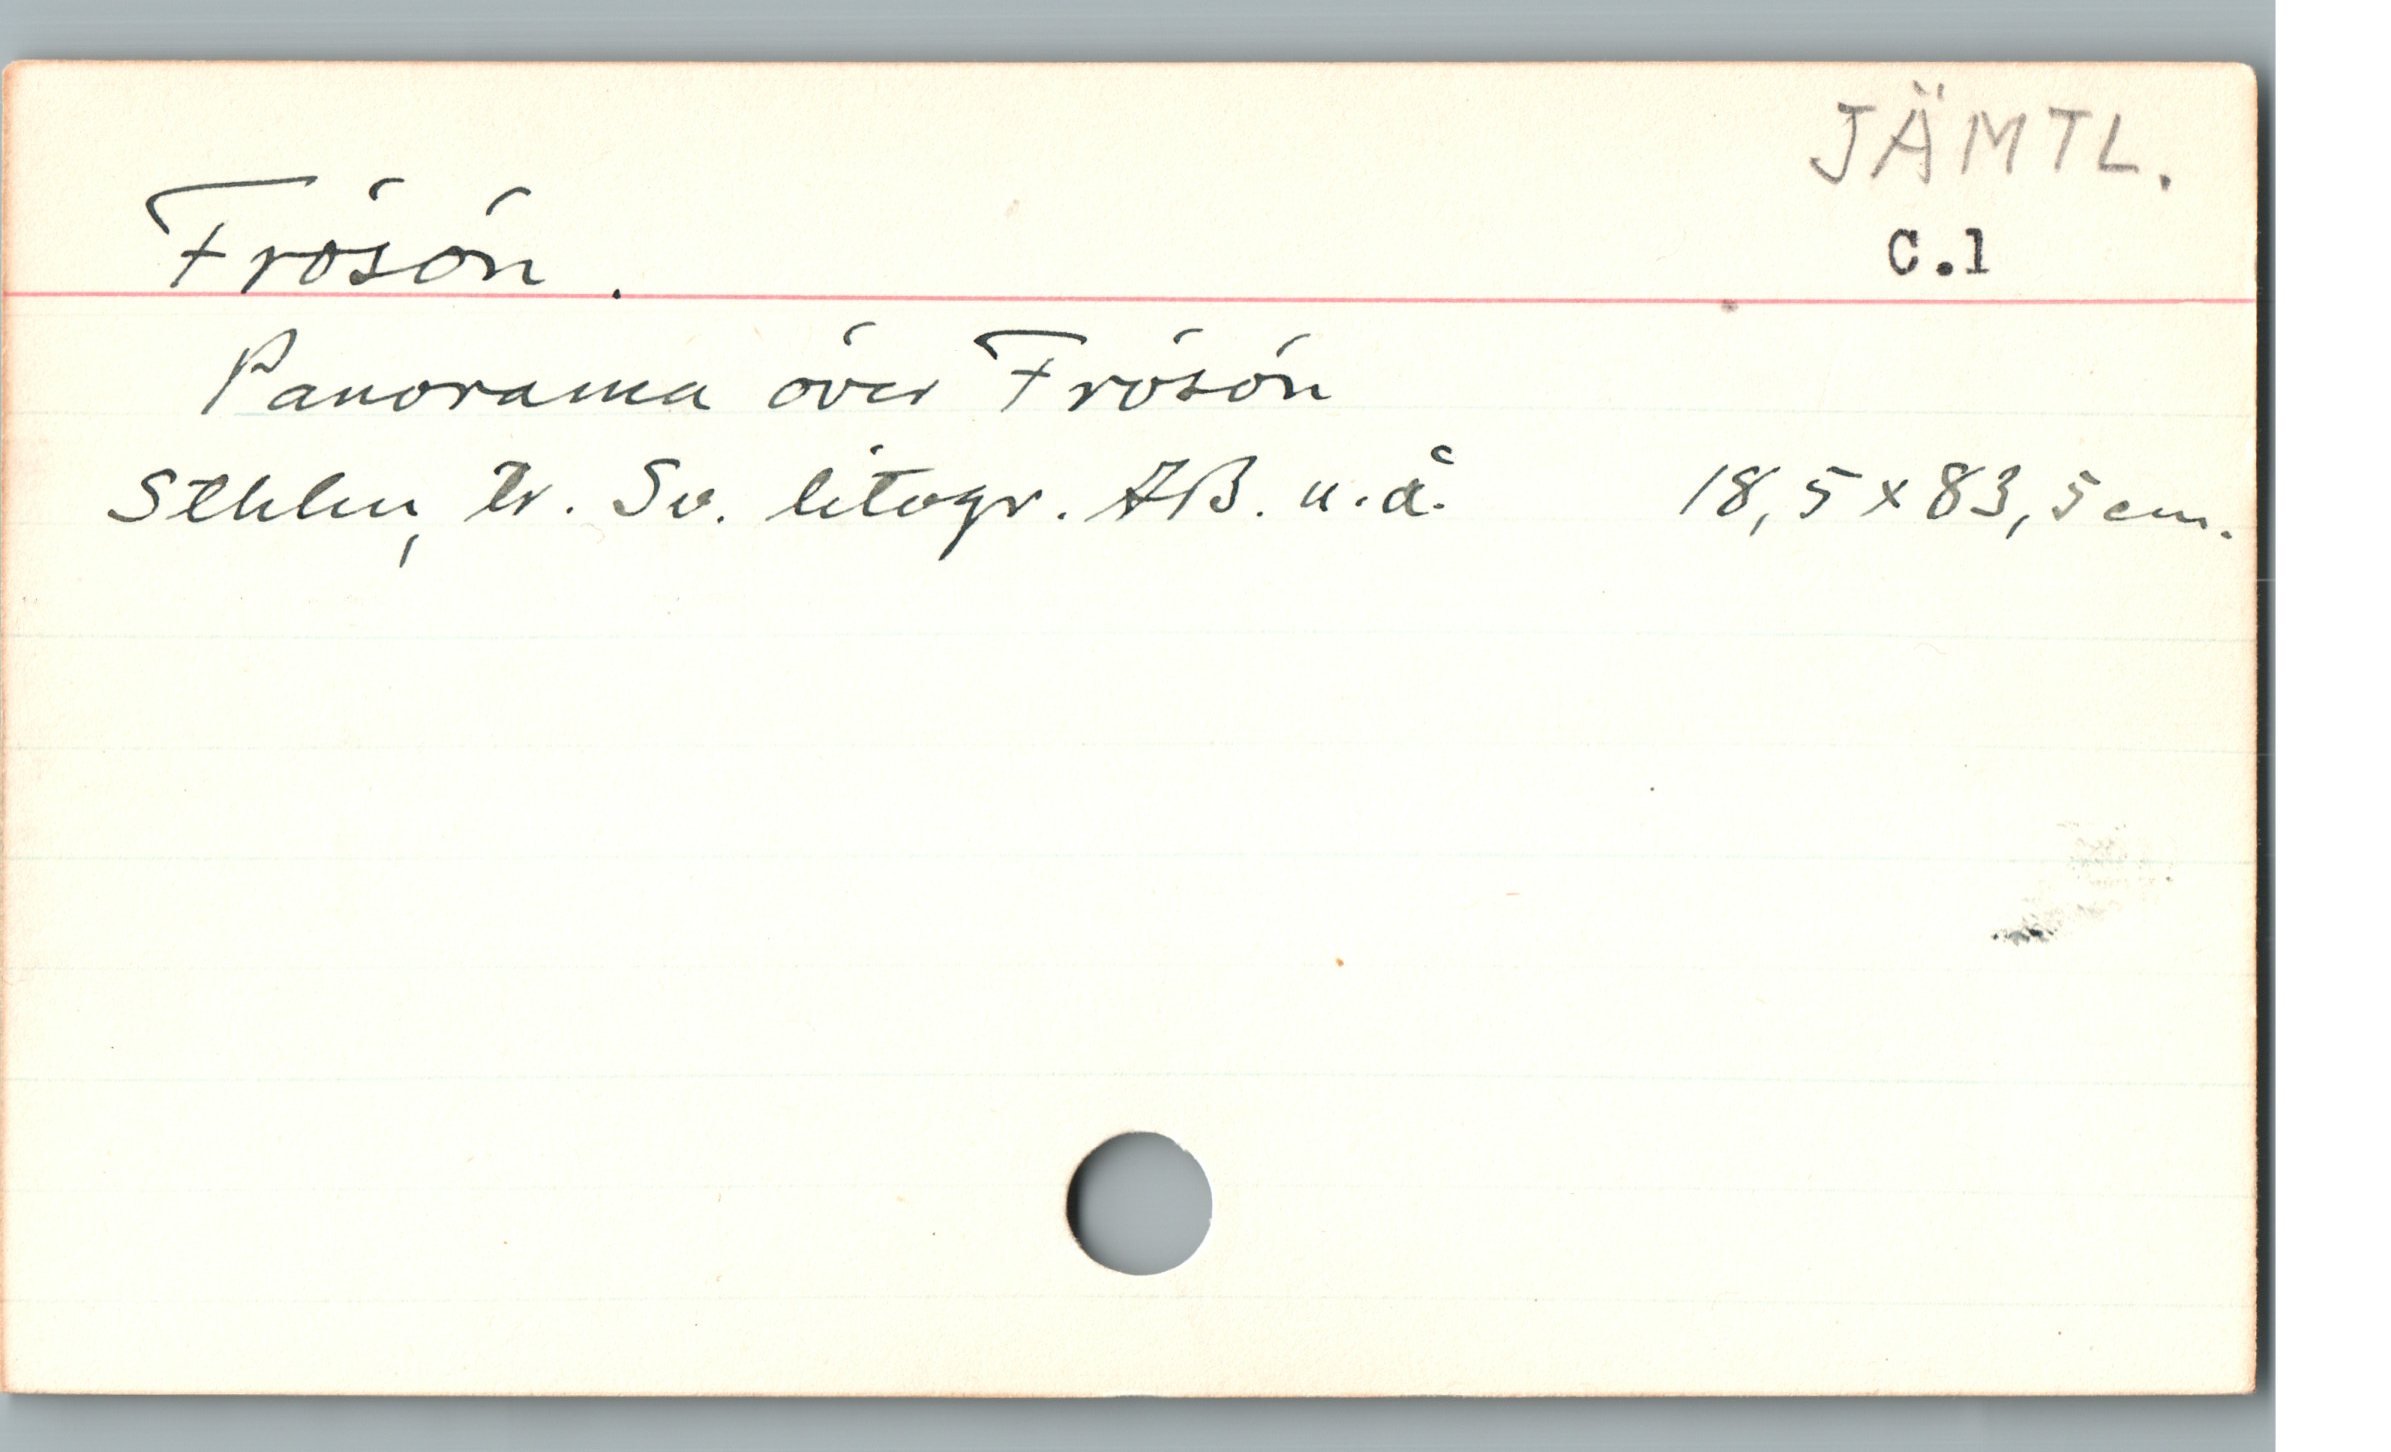 JÄMTL.
Frösön.
C.1
Panorama över Frösön
Sthlm, tr. Sv. litogr. AB. u.å. 18,5 x 83,5 cm.